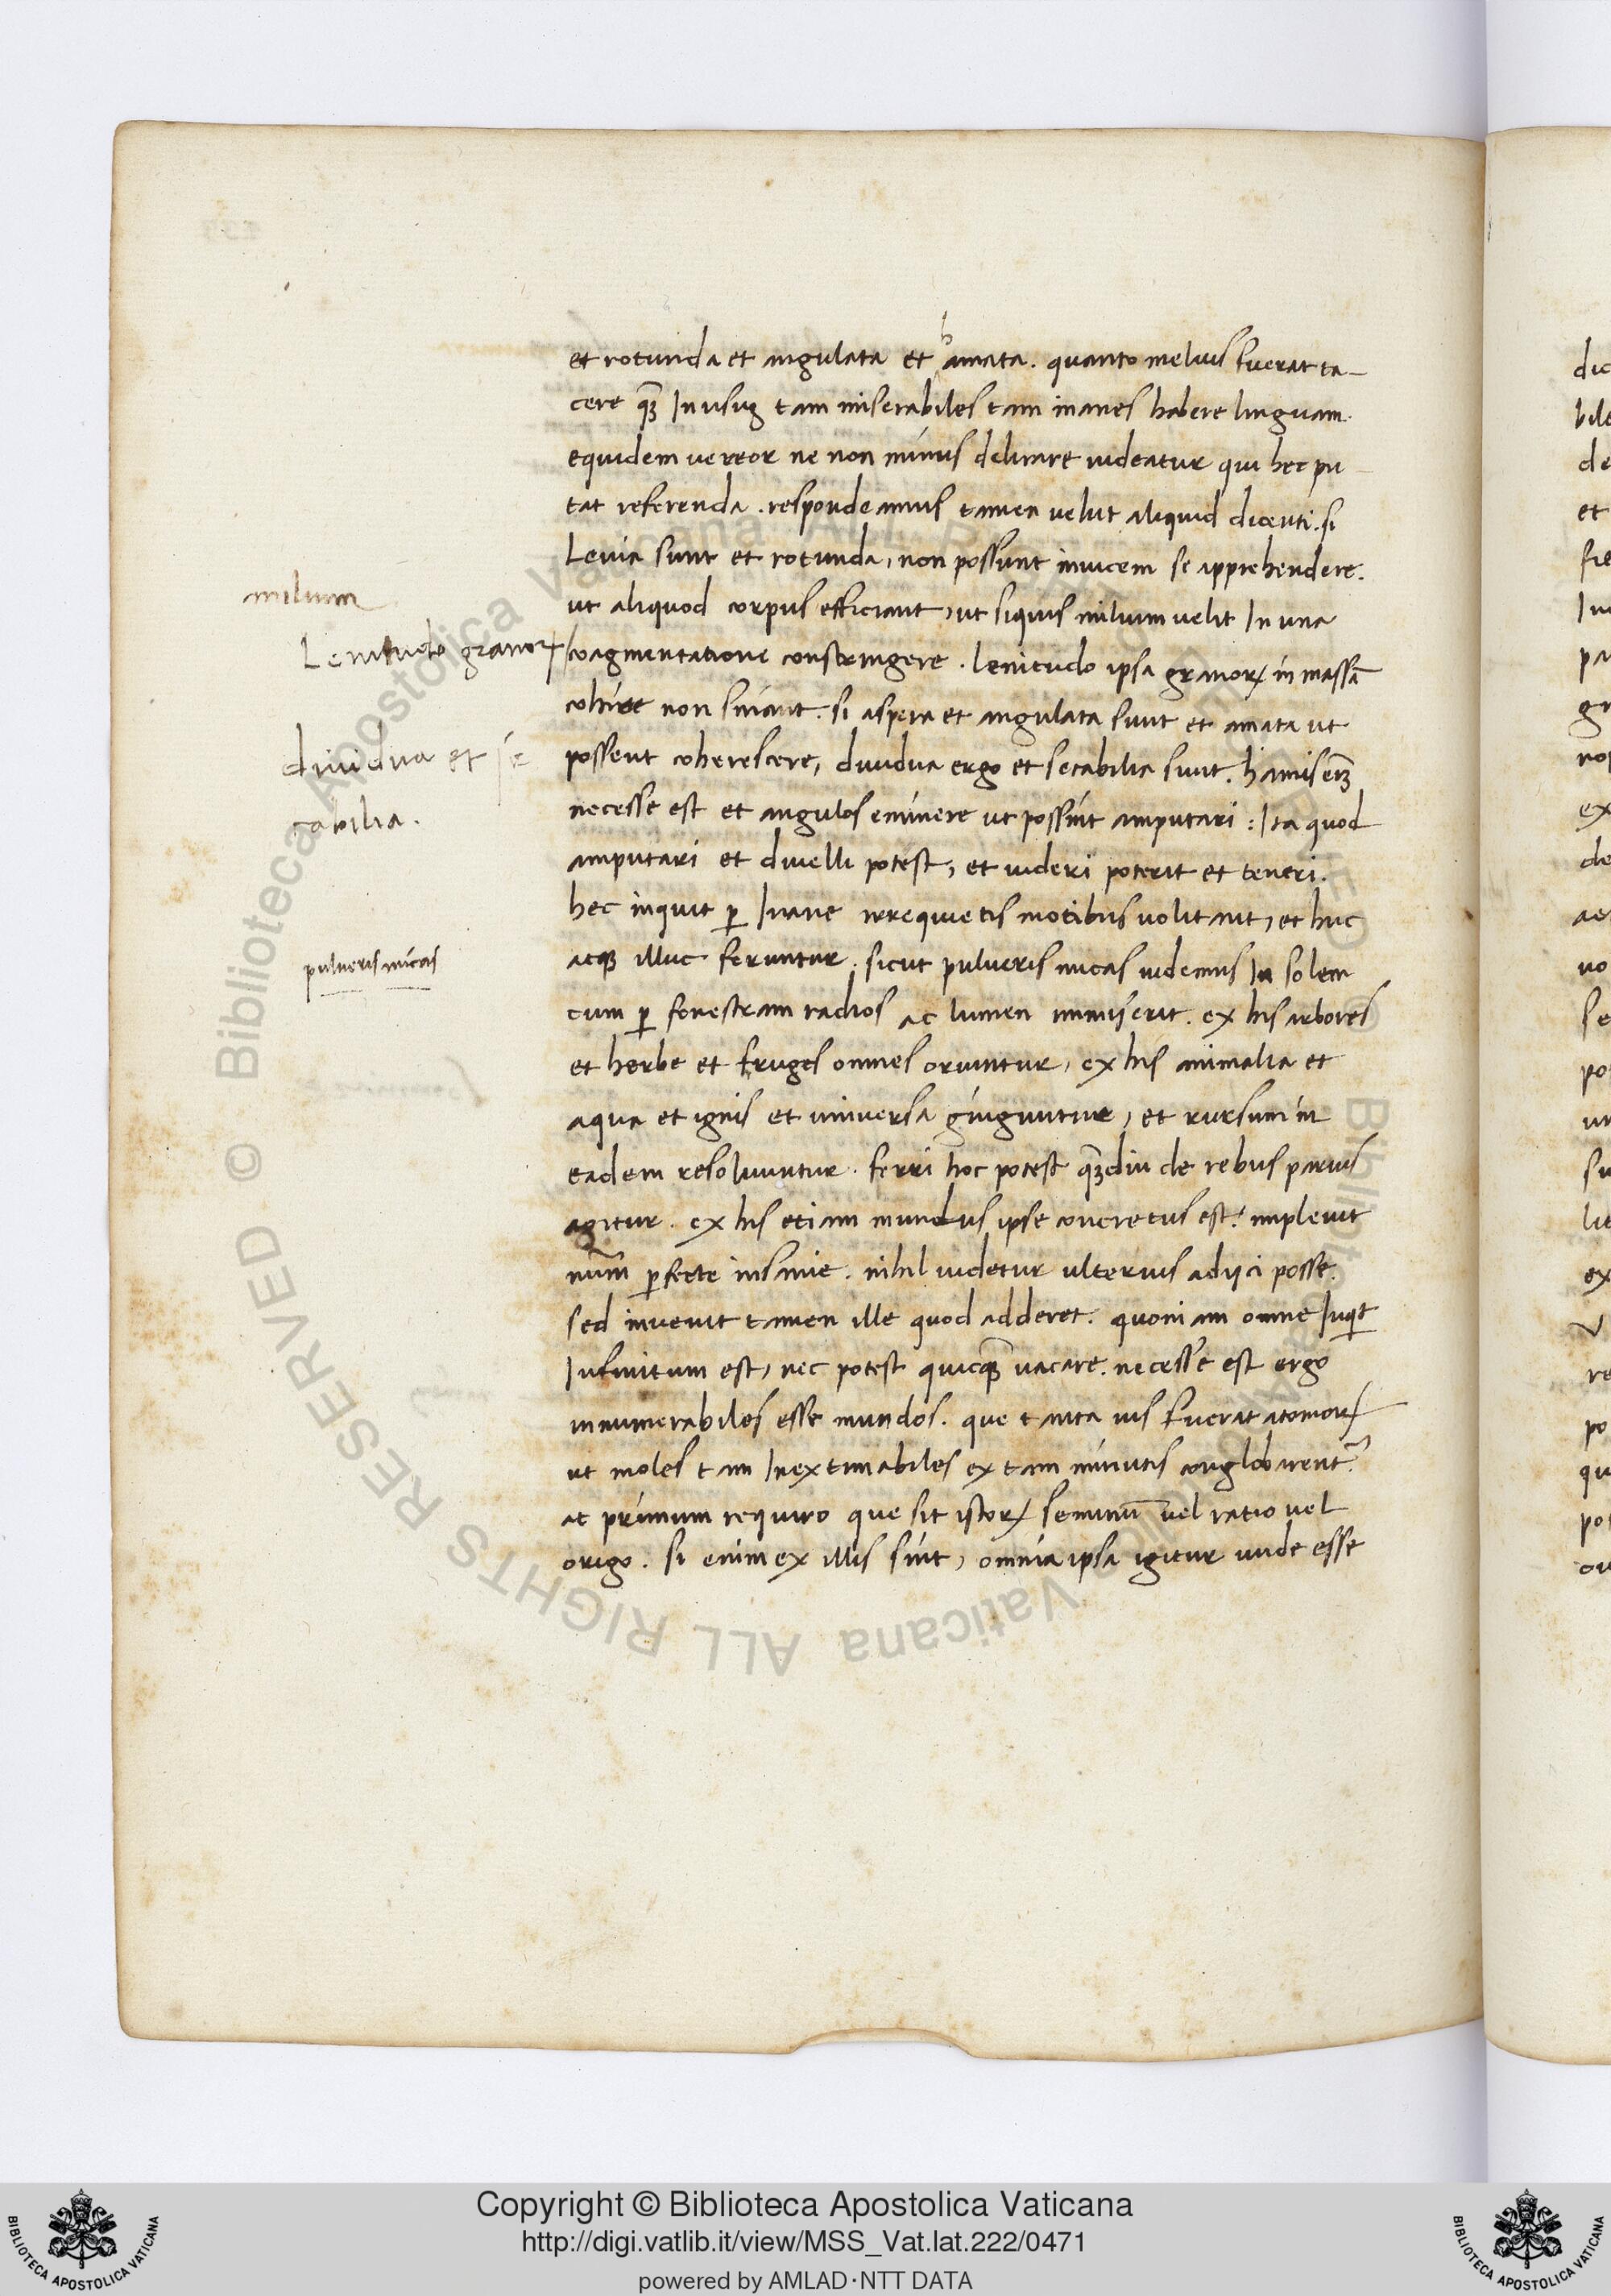 et rotunda et angulata et hamata. quanto melius fuerat ta-
cere qȝ In usus tam miserabiles tam inanes habere linguam.
equidem uereor ne non minus delirare uideatur qui hec pu
tat referenda. respondeamus tamen velut aliquid dicenti. si
Leuia sunt et rotunda, non possunt inuicem se apprehendere.
milium
ut aliquod corpus efficiant, ut siquis milium velit In una
Lenitudo granoꝝ
coagmentatione constringere. lenitudo ipsa granoꝝ in massā
coire non sinant. si aspera et angulata sunt et amata ut
diuidua et se
cabilia.
possent coherescere, diuidua ergo et secabilia sunt. hamis enȝ
necesse est et angulos eminere ut possint amputari: Ita quod
amputari et diuelli potest, et uideri poterit et teneri.
hec inquit ꝑ Inane irrequietis motibus uolitant, et huc
pulueris micas
atqȝ illuc feruntur. sicut pulueris micas uidemus In solem
cum ꝑ fenestram radios ac lumen immiserit. ex his arbores
et herbe et fruges omnes oriuntur, ex his animalia et
aqua et ignis et uniuersa gingnuntur, et rursum in
eadem resoluuntur. ferri hoc potest qȝdiu de rebus paruis
agitur. ex his etiam mundus ipse concretus est. impleuit
nūm ꝑfecte insanie. nihil uidetur ulterius adijci posse.
sed inuenit tamen ille quod adderet. quoniam omne Inqͥt
Infinitum est, nec potest quicqȝ vacare. necesse est ergo
innumerabiles esse mundos. que tanta uis fuerat atomoꝝ
ut moles tam Inextimabiles ex tam minutis conglobarentʳ.
ac primum requiro que sit istoꝝ seminū vel ratio vel
origo. si enim ex illis sint, omnia ipsa igitur unde esse
Copyright © Biblioteca Apostolica Vaticana
http://digi.vatlib.it/view/MSS_Vat.lat.222/0471
powered by AMLAD·NTT DATA
BIBLIOTECA APOSTOLICA VATICANA
BIBLIOTECA APOSTOLICA VATICANA
© Biblioteca Apostolica Vaticana ALL RIGHTS RESERVED